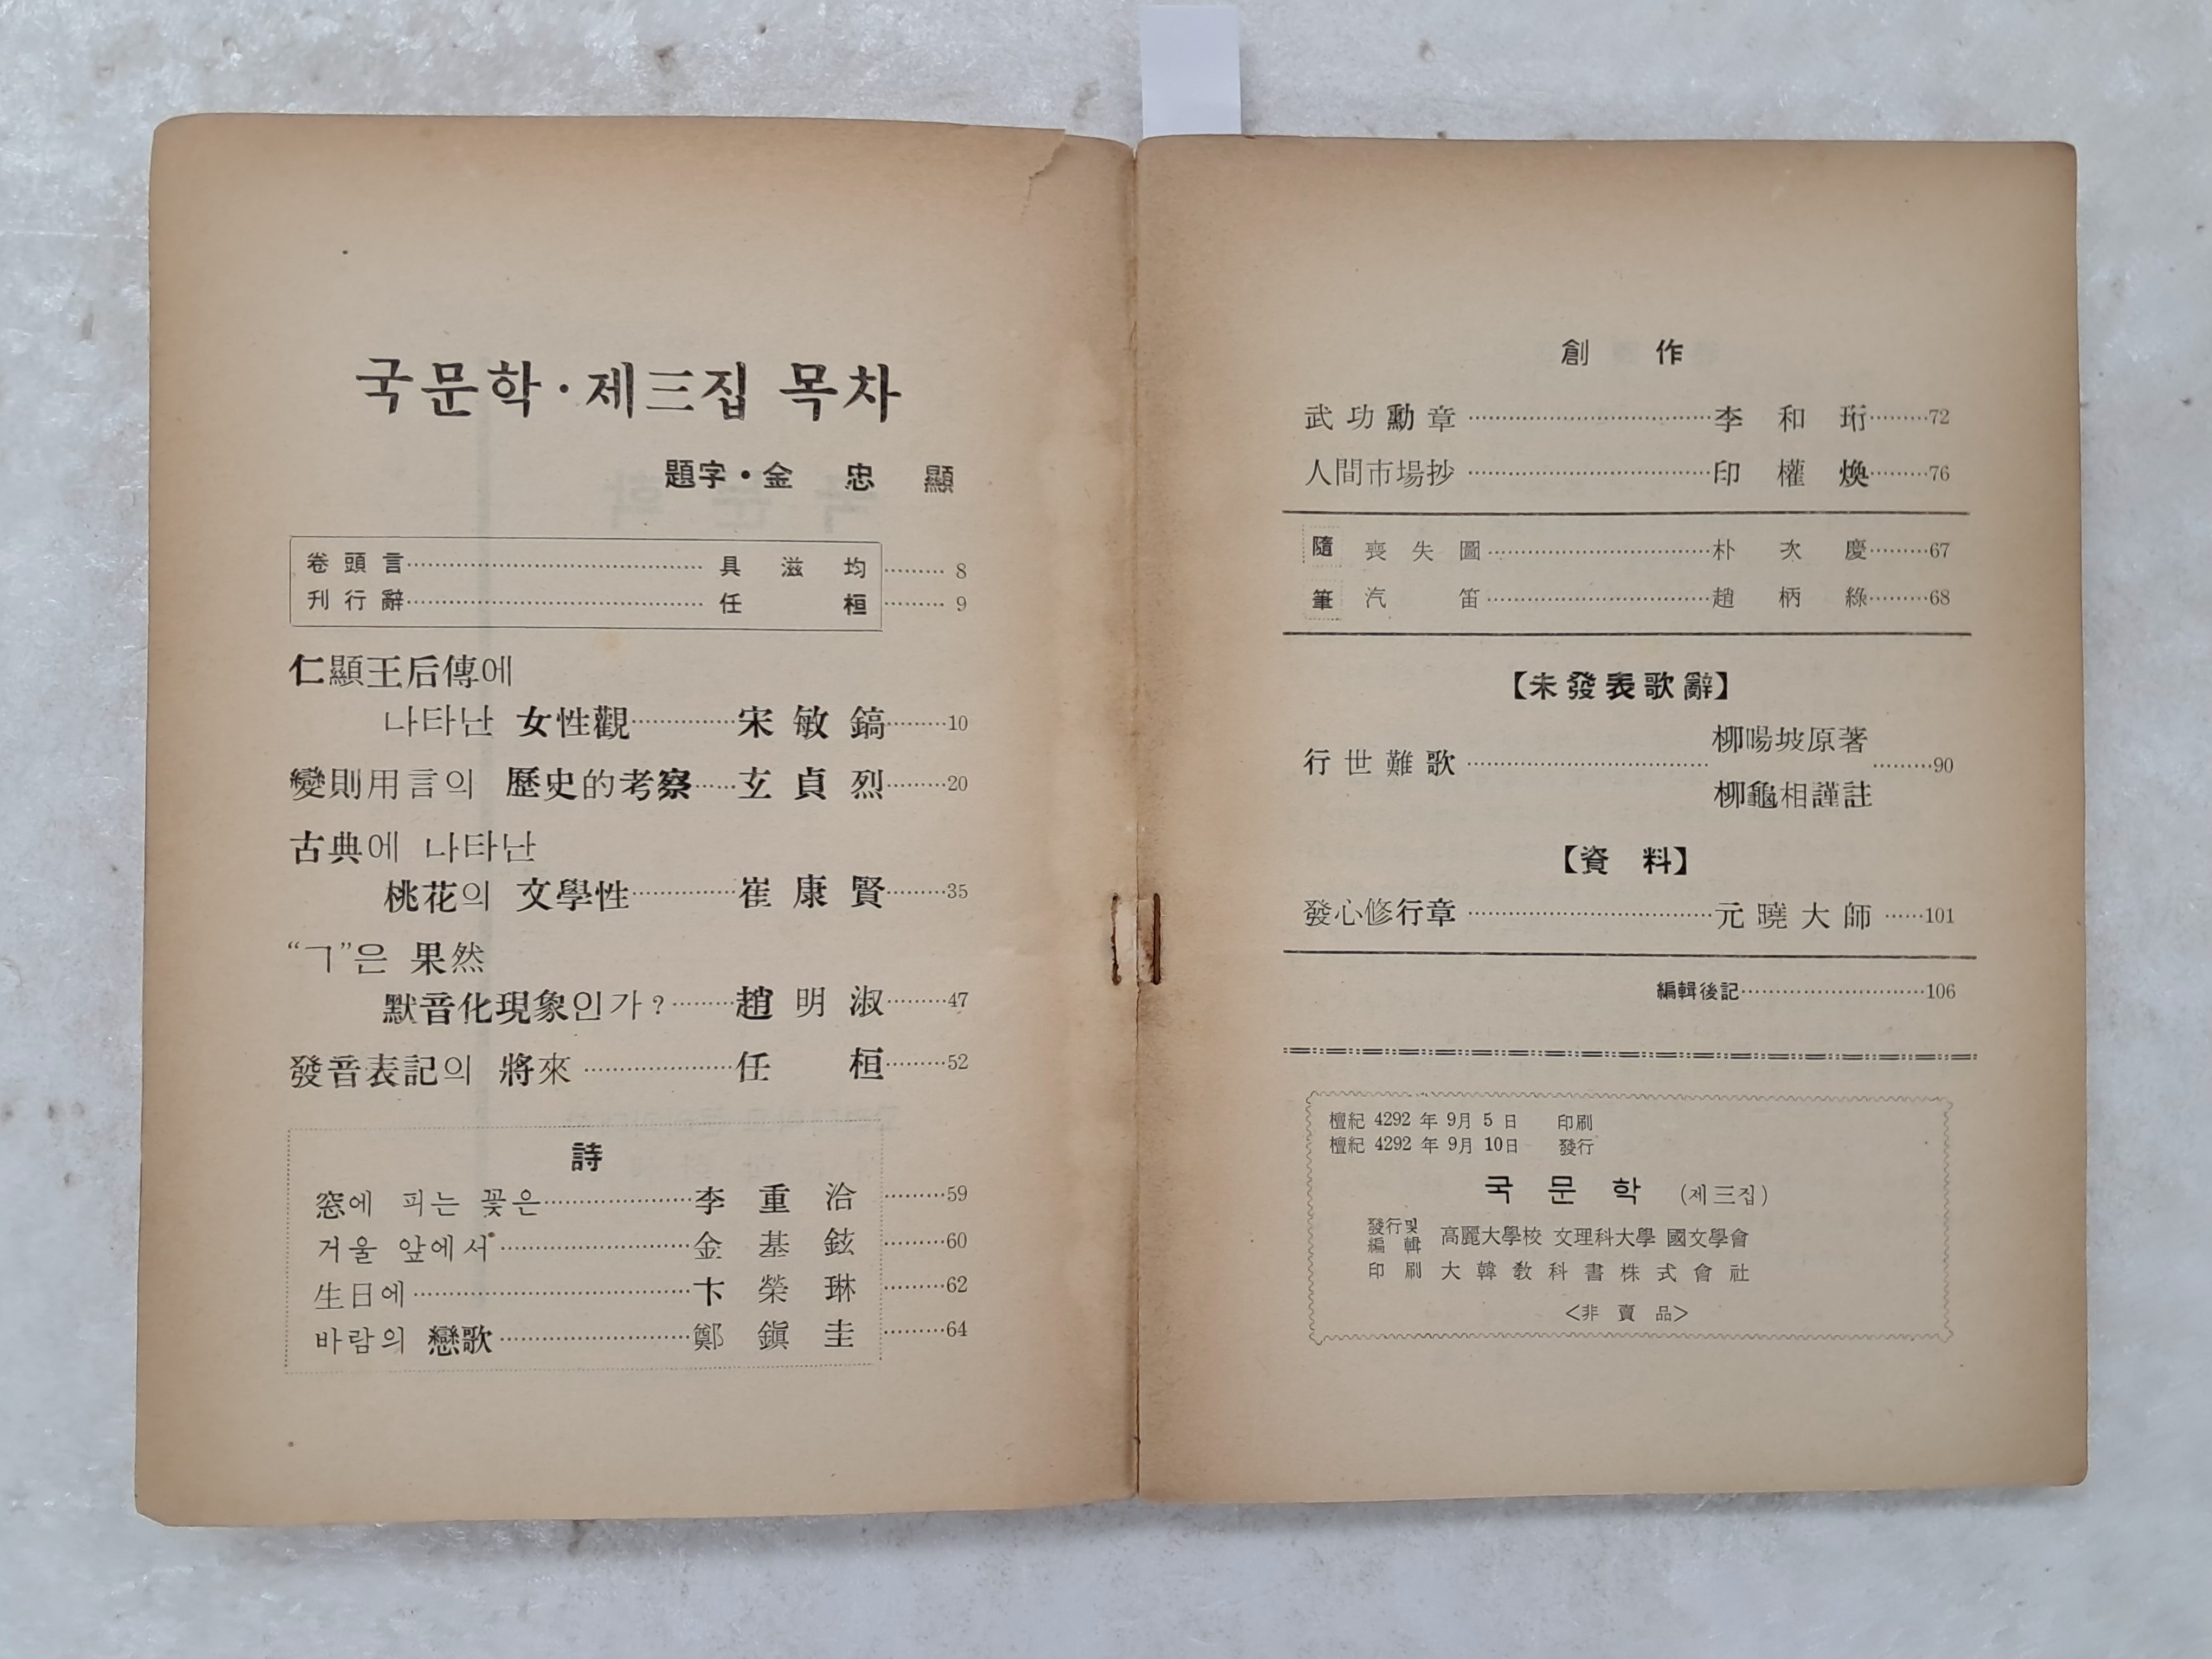 국문학·제三집 목차
題字·金忠顯
卷頭言 具滋均 8
刊行辭 任桓 9
仁顯王后傳에
나타난 女性觀 宋敏鎬 10
變則用言의 歷史的考察 玄貞烈 20
古典에 나타난
桃花의 文學性 崔康賢 35
“ㄱ”은 果然
默音化現象인가? 趙明淑 47
發音表記의 將來 任桓 52
詩
窓에 피는 꽃은 李重洽 59
거울 앞에서 金基鉉 60
生日에 卞榮琳 62
바람의 戀歌 鄭鎭圭 64
創作
武功勳章 李和珩 72
人間市場抄 印權煥 76
隨筆
喪失圖 朴次慶 67
汽笛 趙柄綠 68
【未發表歌辭】
行世難歌 柳暘坡原著 90
柳龜相謹註
【資料】
發心修行章 元曉大師 101
編輯後記 106
檀紀 4292 年 9月 5 日 印刷
檀紀 4292 年 9月 10日 發行
국문학 (제三집)
發行및 編輯 高麗大學校 文理科大學 國文學會
印刷 大韓敎科書株式會社
<非賣品>